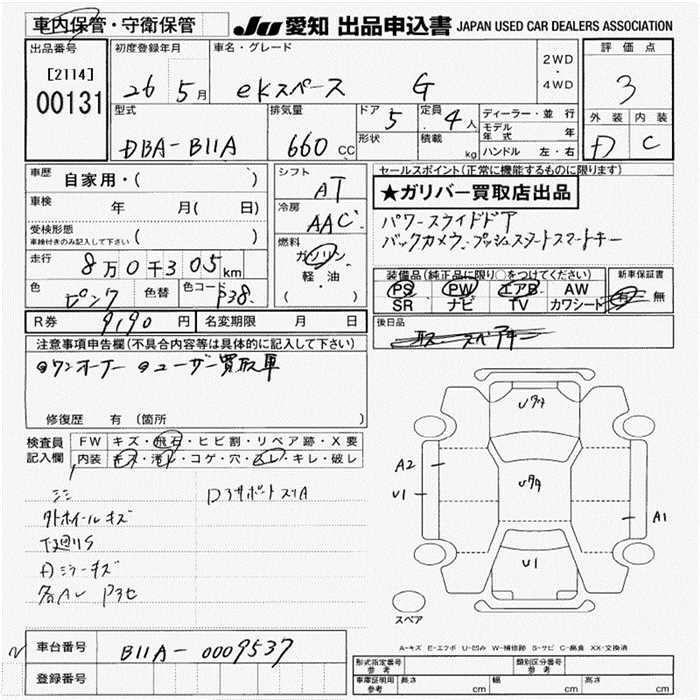 車内保管・守衛保管
JU 愛知 出品申込書 JAPAN USED CAR DEALERS ASSOCIATION
出品番号
[2114]
00131
初度登録年月
26 5月
車名・グレード
ekスペース G
2WD
・
4WD
評価点
3
外装 内装
D C
型式
DBA-B11A
排気量
660 CC
ドア 5
形状
定員 4人
積載 kg
ディーラー・並行
モデル年式 年
ハンドル 左・右
車歴
自家用・( )
車検 年 月( 日)
受検形態
車検付きのみ記入して下さい ( )
走行 8万0千305km
色 ピンク 色替 色コード P38
シフト
AT
冷房
AAC
燃料
ガソリン
軽・油
( )
セールスポイント(正常に機能するものに限ります)
★ガリバー買取店出品
パワースライドドア
バックカメラ、プッシュスタートスマートキー
装備品(純正品に限り○をつけてください)
PS PW エアB AW
SR ナビ TV カワシート
新車保証書
有・無
R券 9190円
名変期限 月 日
後日品
注意事項申告欄(不具合内容等は具体的に記入して下さい)
●ワンオーナー ●ユーザー買取車
修復歴 有 (箇所 )
検査員
記入欄
FW キズ・飛石・ヒビ割・リペア跡・X要
内装 キズ・汚レ・コゲ・穴・ムレ・キレ・破レ
D3サポートスリA
外ホイールキズ
下廻りS
Dミラーキズ
A2
U1
A1
U1
スペア
A-キズ E-エクボ U-凹み W-補修跡 S-サビ C-腐食 XX-交換済
車台番号 B11A-0009537
登録番号
形式指定番号
参考
類別区分番号
参考
車庫証明用
参考
長さ cm 幅 cm 高さ cm